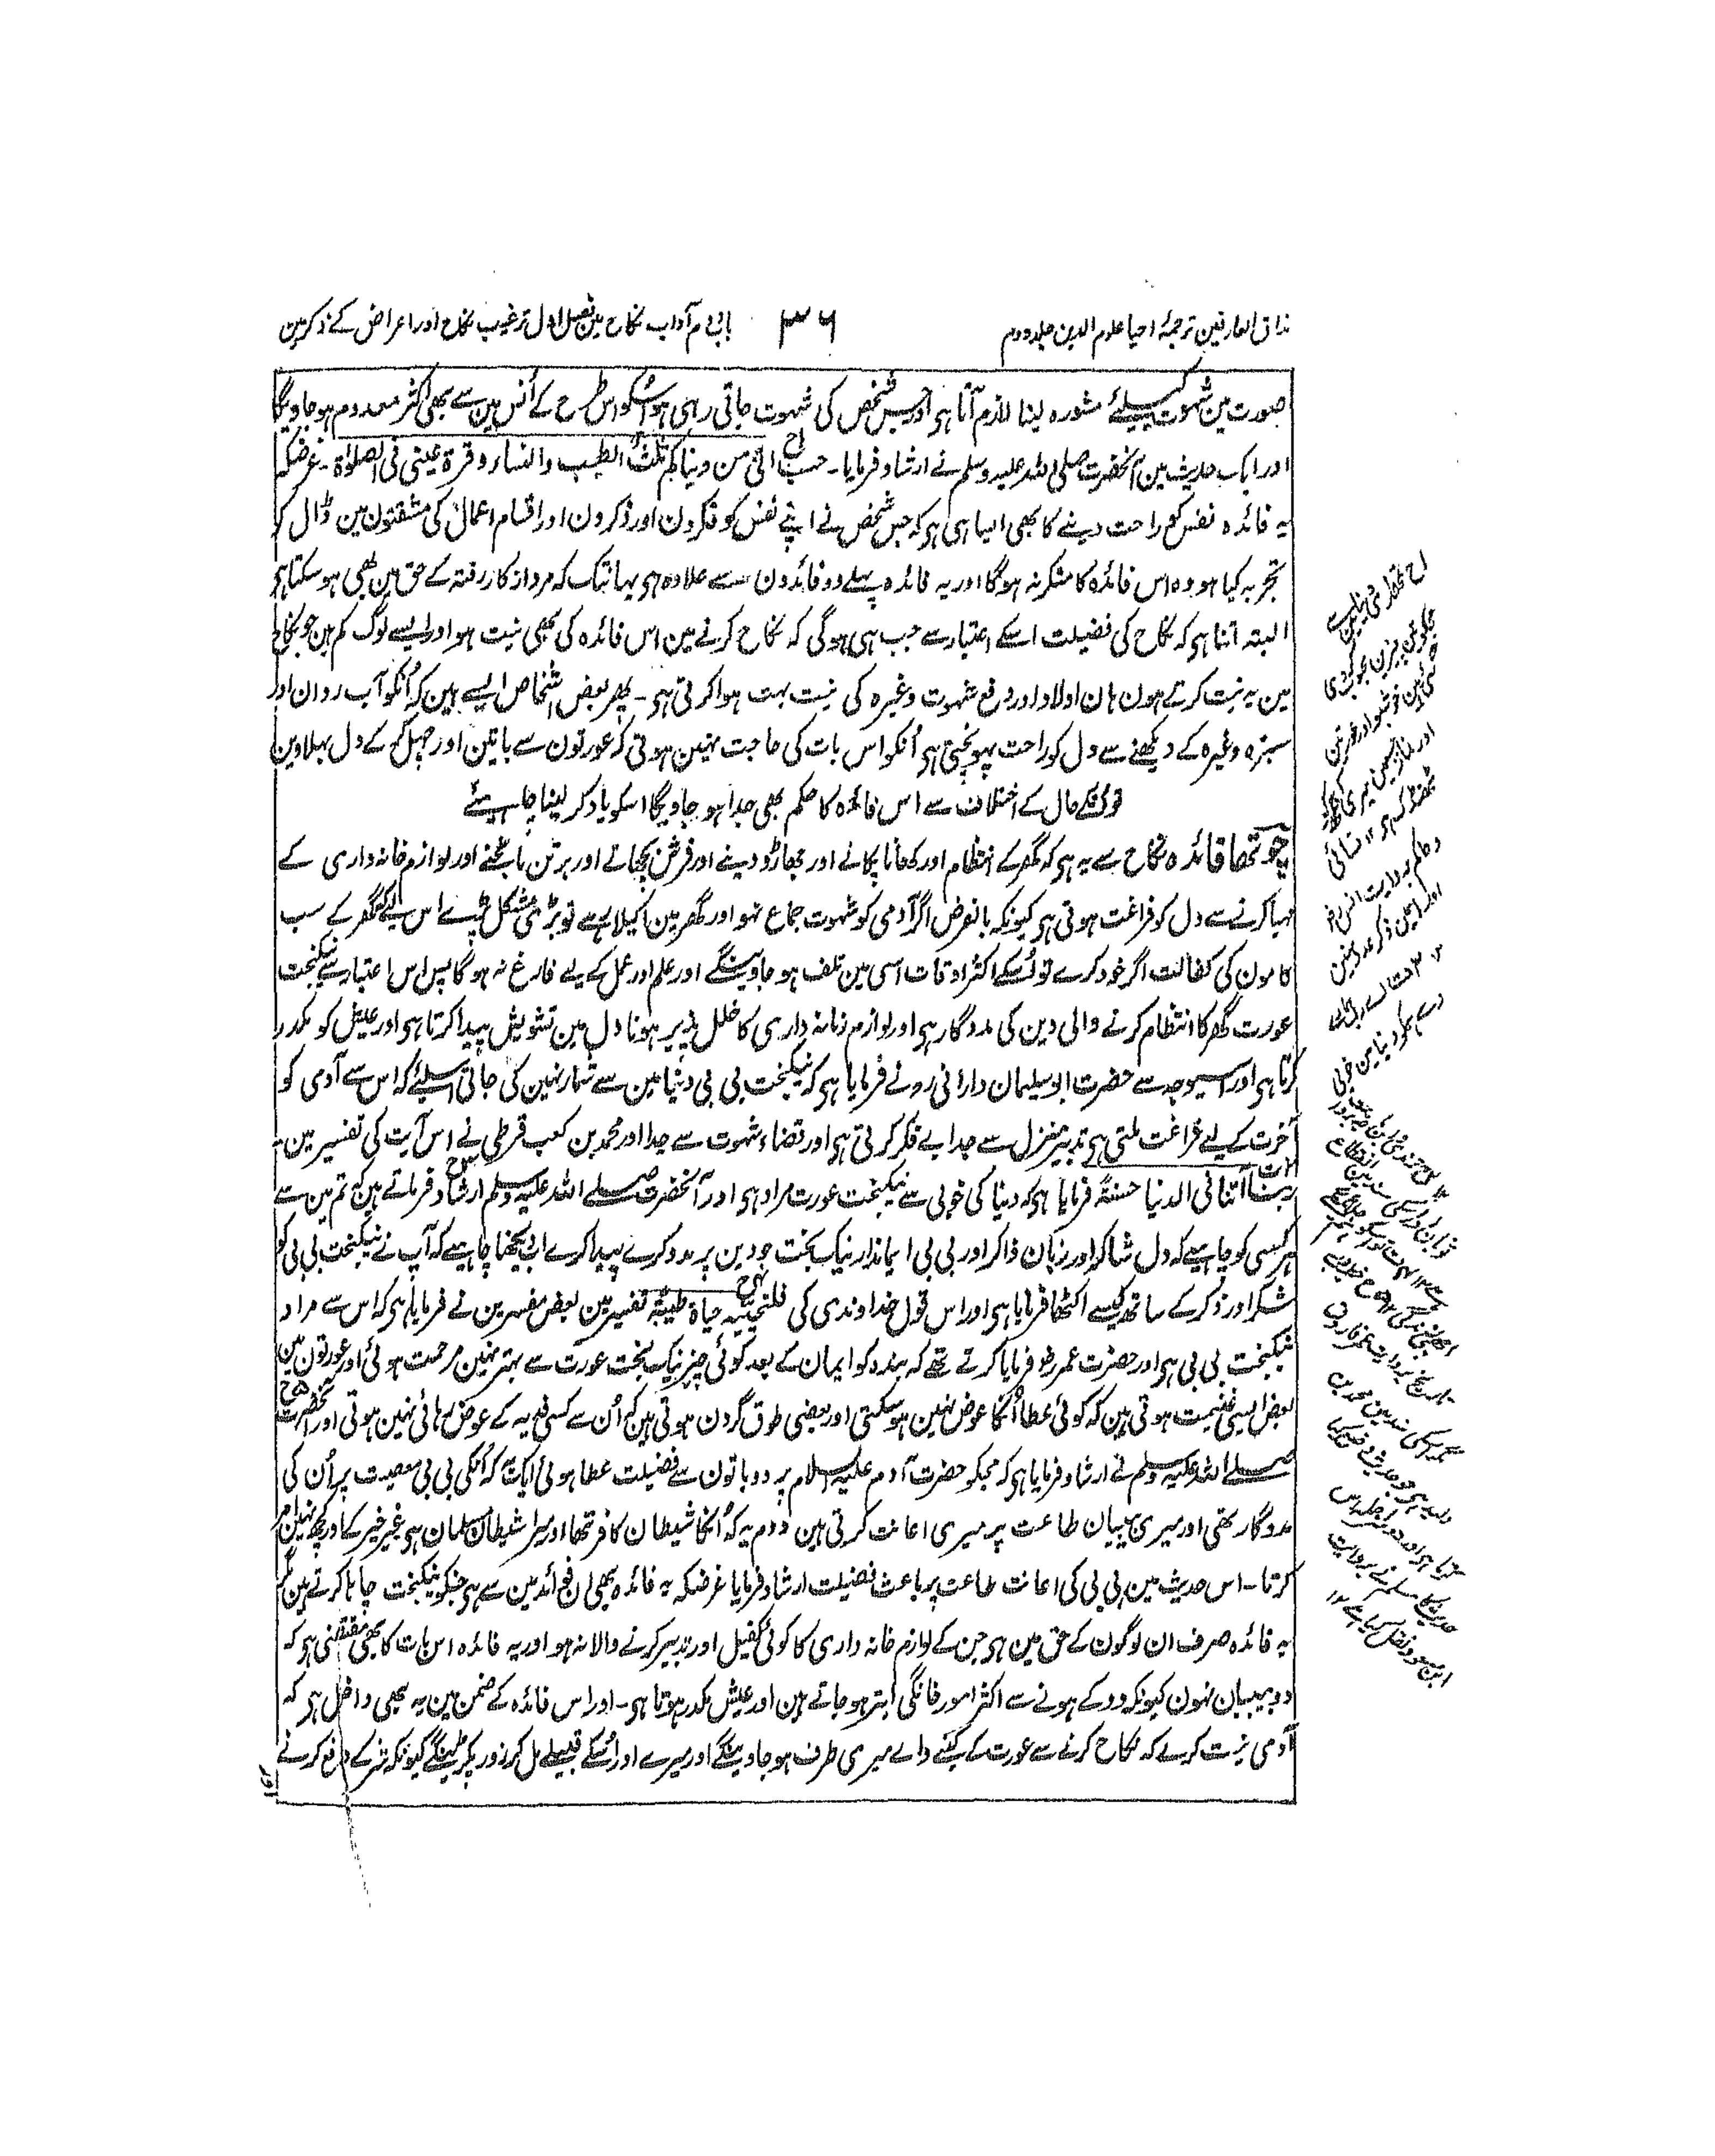 مذاق العارفین ترجمۂ احیاء علوم الدین جلد دوم
۳۶
باب دوم آداب نکاح مین فصل اول ترغیب نکاح اور اعراض کے ذکر مین
صورت مین شہوت کیلئے مشورہ لینا لازم آتا ہی اور جس شخص کی شہوت جاتی رہی ہو اُسکو اس طرح کے اُنس مین سے بھی اکثر معدوم ہو جاویگا
اور ایک حدیث مین آنحضرت صلی اللہ علیہ وسلم نے ارشاد فرمایا۔ حبب الیّ من دنیاکم ثلث الطیب والنساء وقرۃ عینی فی الصلوٰۃ۔ غرضکہ
یہ فائدہ نفس کو راحت دینے کا بھی ایسا ہی ہی کہ جس شخص نے اپنے نفس کو فکرون اور ذکرون اور اقسام اعمال کی مشقتون مین ڈال کر
تجربہ کیا ہو وہ اس فائدہ کا منکر نہ ہوگا اور یہ فائدہ پہلے دو فائدون سے علاوہ ہی یہانتک کہ مرد از کار رفتہ کے حق مین بھی ہو سکتا ہی
البتہ اتنا ہی کہ نکاح کی فضیلت اسکے اعتبار سے جب ہی ہوگی کہ نکاح کرنے مین اس فائدہ کی بھی نیت ہو اور ایسے لوگ کم ہین جو نکاح
مین یہ نیت کرتے ہون ہان اولاد اور دفع شہوت وغیرہ کی نیت بہت ہوا کرتی ہی۔ پھر بعض اشخاص ایسے ہین کہ اُنکو آب روان اور
سبزہ وغیرہ کے دیکھنے سے دل کو راحت پہونچتی ہی اُنکو اس بات کی حاجت نہین ہوتی کہ عورتون سے باتین اور چہل کر کے دل بہلاوین
تو اُنکے حال کے اختلاف سے اس فائدہ کا حکم بھی جدا ہو جاویگا اسکو یاد کر لینا چاہیئے
چوتھا فائدہ نکاح سے یہ ہی کہ گھر کے انتظام اور کھانا پکانے اور جھاڑو دینے اور فرش بچھانے اور برتن مانجنے اور لوازم خانہ داری کے
مہیا کرنے سے دل کو فراغت ہوتی ہی کیونکہ بالفرض اگر آدمی کو شہوت جماع نہو اور گھر مین اکیلا رہے تو بڑی مشکل پڑے اس لیے کہ گھر کے سب
کامون کی کفالت اگر خود کرے تو اُسکے اکثر اوقات اسی مین تلف ہو جاوینگے اور علم اور عمل کے لیے فارغ نہ ہوگا پس اس اعتبار سے نیکبخت
عورت گھر کا انتظام کرنے والی دین کی مددگار ہی اور لوازم خانہ داری کا خلل پذیر ہونا دل مین تشویش پیدا کرتا ہی اور عیش کو مکدر
کرتا ہی اور اسیوجہ سے حضرت ابو سلیمان دارانی رہ نے فرمایا ہی کہ نیکبخت بی بی دنیا مین سے شمار نہین کی جاتی اسلئے کہ اس سے آدمی کو
آخرت کے لیے فراغت ملتی ہی تدبیر منزل سے جدا بے فکر کرتی ہی اور قضاء شہوت سے جدا اور محمد بن کعب قرظی نے اس آیت کی تفسیر مین
ربنا آتنا فی الدنیا حسنۃ فرمایا ہی کہ دنیا کی خوبی سے نیکبخت عورت مراد ہی اور آنحضرت صلے اللہ علیہ وسلم ارشاد فرماتے ہین کہ تم مین سے
ہر کسی کو چاہیے کہ دل شاکر اور زبان ذاکر اور بی بی ایماندار نیک بخت جو دین پر مدد کرے پیدا کرے اب دیکھنا چاہیے کہ آپ نے نیکبخت بی بی کو
شکر اور ذکر کے ساتھ کیسے اکٹھا فرمایا ہی اور اس قول خداوندی کی فلنحیینہ حیاۃ طیبۃ تفسیر مین بعض مفسرین نے فرمایا ہی کہ اس سے مراد
نیکبخت بی بی ہی اور حضرت عمر رضہ فرمایا کرتے تھے کہ بندہ کو ایمان کے بعد کوئی چیز نیک بخت عورت سے بہتر نہین مرحمت ہوئی اور عورتون مین
بعض ایسی غنیمت ہوتی ہین کہ کوئی عطا اُنکا عوض نہین ہوسکتی اور بعضی طوق گردن ہوتی ہین کہ اُن سے کسی فدیہ کے عوض رہائی نہین ہوتی اور آنحضرت
صلے اللہ علیہ وسلم نے ارشاد فرمایا ہی کہ مجکو حضرت آدم علیہ السلام پر دو باتون سے فضیلت عطا ہوئی ایک یہ کہ اُنکی بی بی معصیت پر اُن کی
مددگار تھی اور میری بیبیان طاعت پر میری اعانت کرتی ہین دوم یہ کہ اُنکا شیطان کافر تھا اور میرا شیطان مسلمان ہی بغیر خیر کے اور کچھ نہین امر
کرتا۔ اس حدیث مین بی بی کی اعانت طاعت پر باعث فضیلت ارشاد فرمایا غرضکہ یہ فائدہ بھی ان فوائد مین سے ہی جنکو نیکبخت چاہا کرتے ہین مگر
یہ فائدہ صرف ان لوگون کے حق مین ہی جن کے لوازم خانہ داری کا کوئی کفیل اور تدبیر کرنے والا نہ ہو اور یہ فائدہ اس بات کا بھی مقتضی ہی کہ
دو بیبیان نہون کیونکہ دو کے ہونے سے اکثر امور خانگی ابتر ہو جاتے ہین اور عیش مکدر ہوتا ہی۔ اور اس فائدہ کے ضمن مین یہ بھی داخل ہی کہ
آدمی نیت کرے کہ نکاح کرنے سے عورت کے کنبے والے میری طرف ہو جاوینگے اور میرے اور اُسکے قبیلے مل کر زور پکڑینگے کیونکہ شر کے دفع کرنے
اور